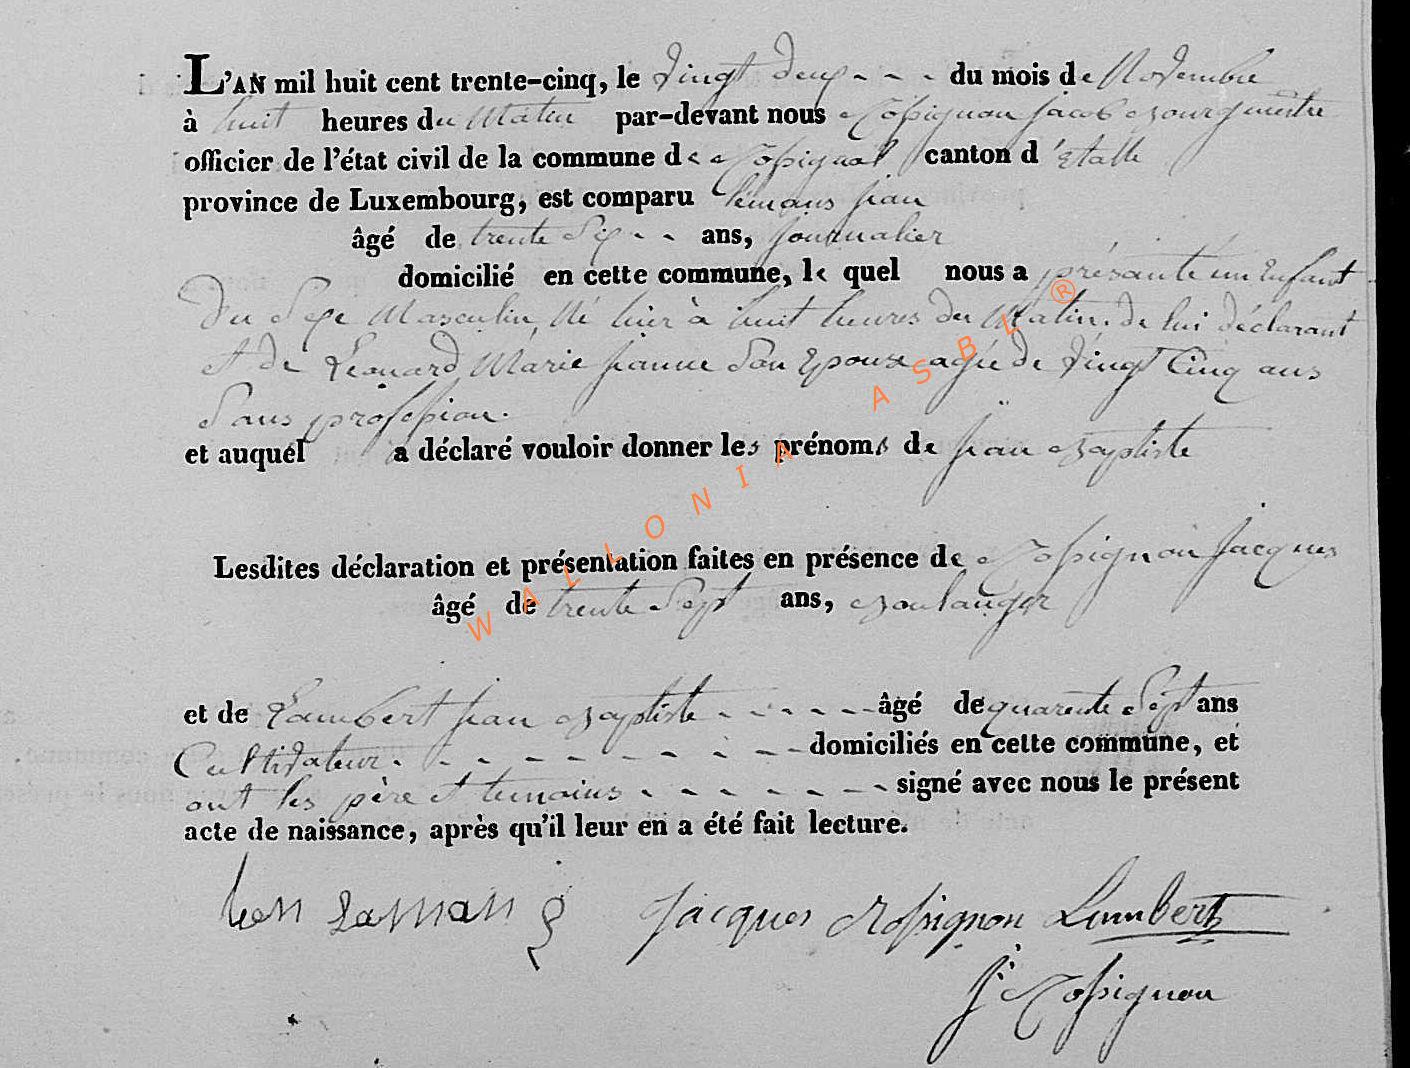 L'AN mil huit cent trente-cinq, le vingt deux - - - du mois de Novembre
à huit heures du Matin par-devant nous Rossignon Jacob Bourgmestre
officier de l'état civil de la commune de Rossignol canton d'Etalle
province de Luxembourg, est comparu Lémans jean
âgé de trente Six - - ans, journalier
domicilié en cette commune, lequel nous a présanté un Enfant
Du Sexe Masculin, Né hier à huit heures du Matin. de lui déclarant
et de Léonard Marie jeanne Son Epouse agée de vingt Cinq ans
Sans profession.
et auquel a déclaré vouloir donner les prénoms de jean Baptiste
Lesdites déclaration et présentation faites en présence de Rossignon Jacques
âgé de trente Sept ans, Boulanger
et de Lambert jean Baptiste - - - - - âgé de quarente Sept ans
Cultivateur - - - - - - - - - domiciliés en cette commune, et
ont les père et temoins - - - - - - - signé avec nous le présent
acte de naissance, après qu'il leur en a été fait lecture.
Jacques Rossignon Lambert
J: Rossignon
WALLONIA ASBL ®